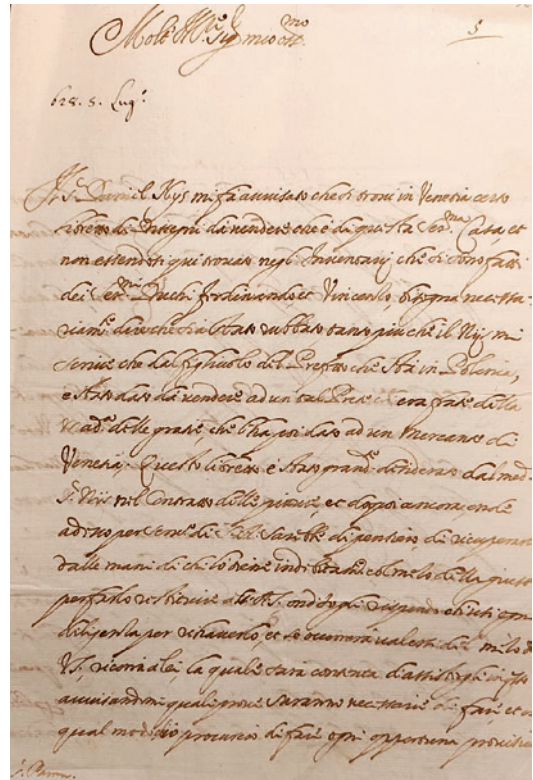 Molt Ill.re Sig.r mio oss.mo
5
628. 5. Lug.o
Il S.r Daniel Nys mi fa avvisato che si trovi in Venetia certo
libretto di Disegni da vendere che è di questa Ser.ma Casa, et
non essendosi qui trovato negli Inventarij che si sono fatti
dei Ser.mi Duchi Ferdinando et Vincenzo, bisogna necessa-
riam.te dire che sia stato rubbato tanto più che il Nys mi
scrive che dal figliuolo del Prefetto che sta in Polonia,
è stato dato da vendere ad un tal Prete era frate della
delle gratie, che l'ha poi dato ad un Mercante di
Venetia; Questo libretto è stato grand.te desiderato dal med.
S. Nys nel Contratto delle pitture, et dappoi ancora, onde
adesso per ser.o di S.A. sarebbe di pensiero di ricuperarlo
dalle mani di chi lo tiene indebitam.te col mezo della giusti
per farlo restituire all'A.S. ond'io gli rispondo ch'usi ogni
diligenza per rihaverlo, et se occorrerà valersi del mezo di
V.S. ricorra a lei, la quale sarà contenta d'assistergli in
avvisandomi quali prove saranno necessarie di fare et
qual modo io procurerò di fare ogni opportuna provisi